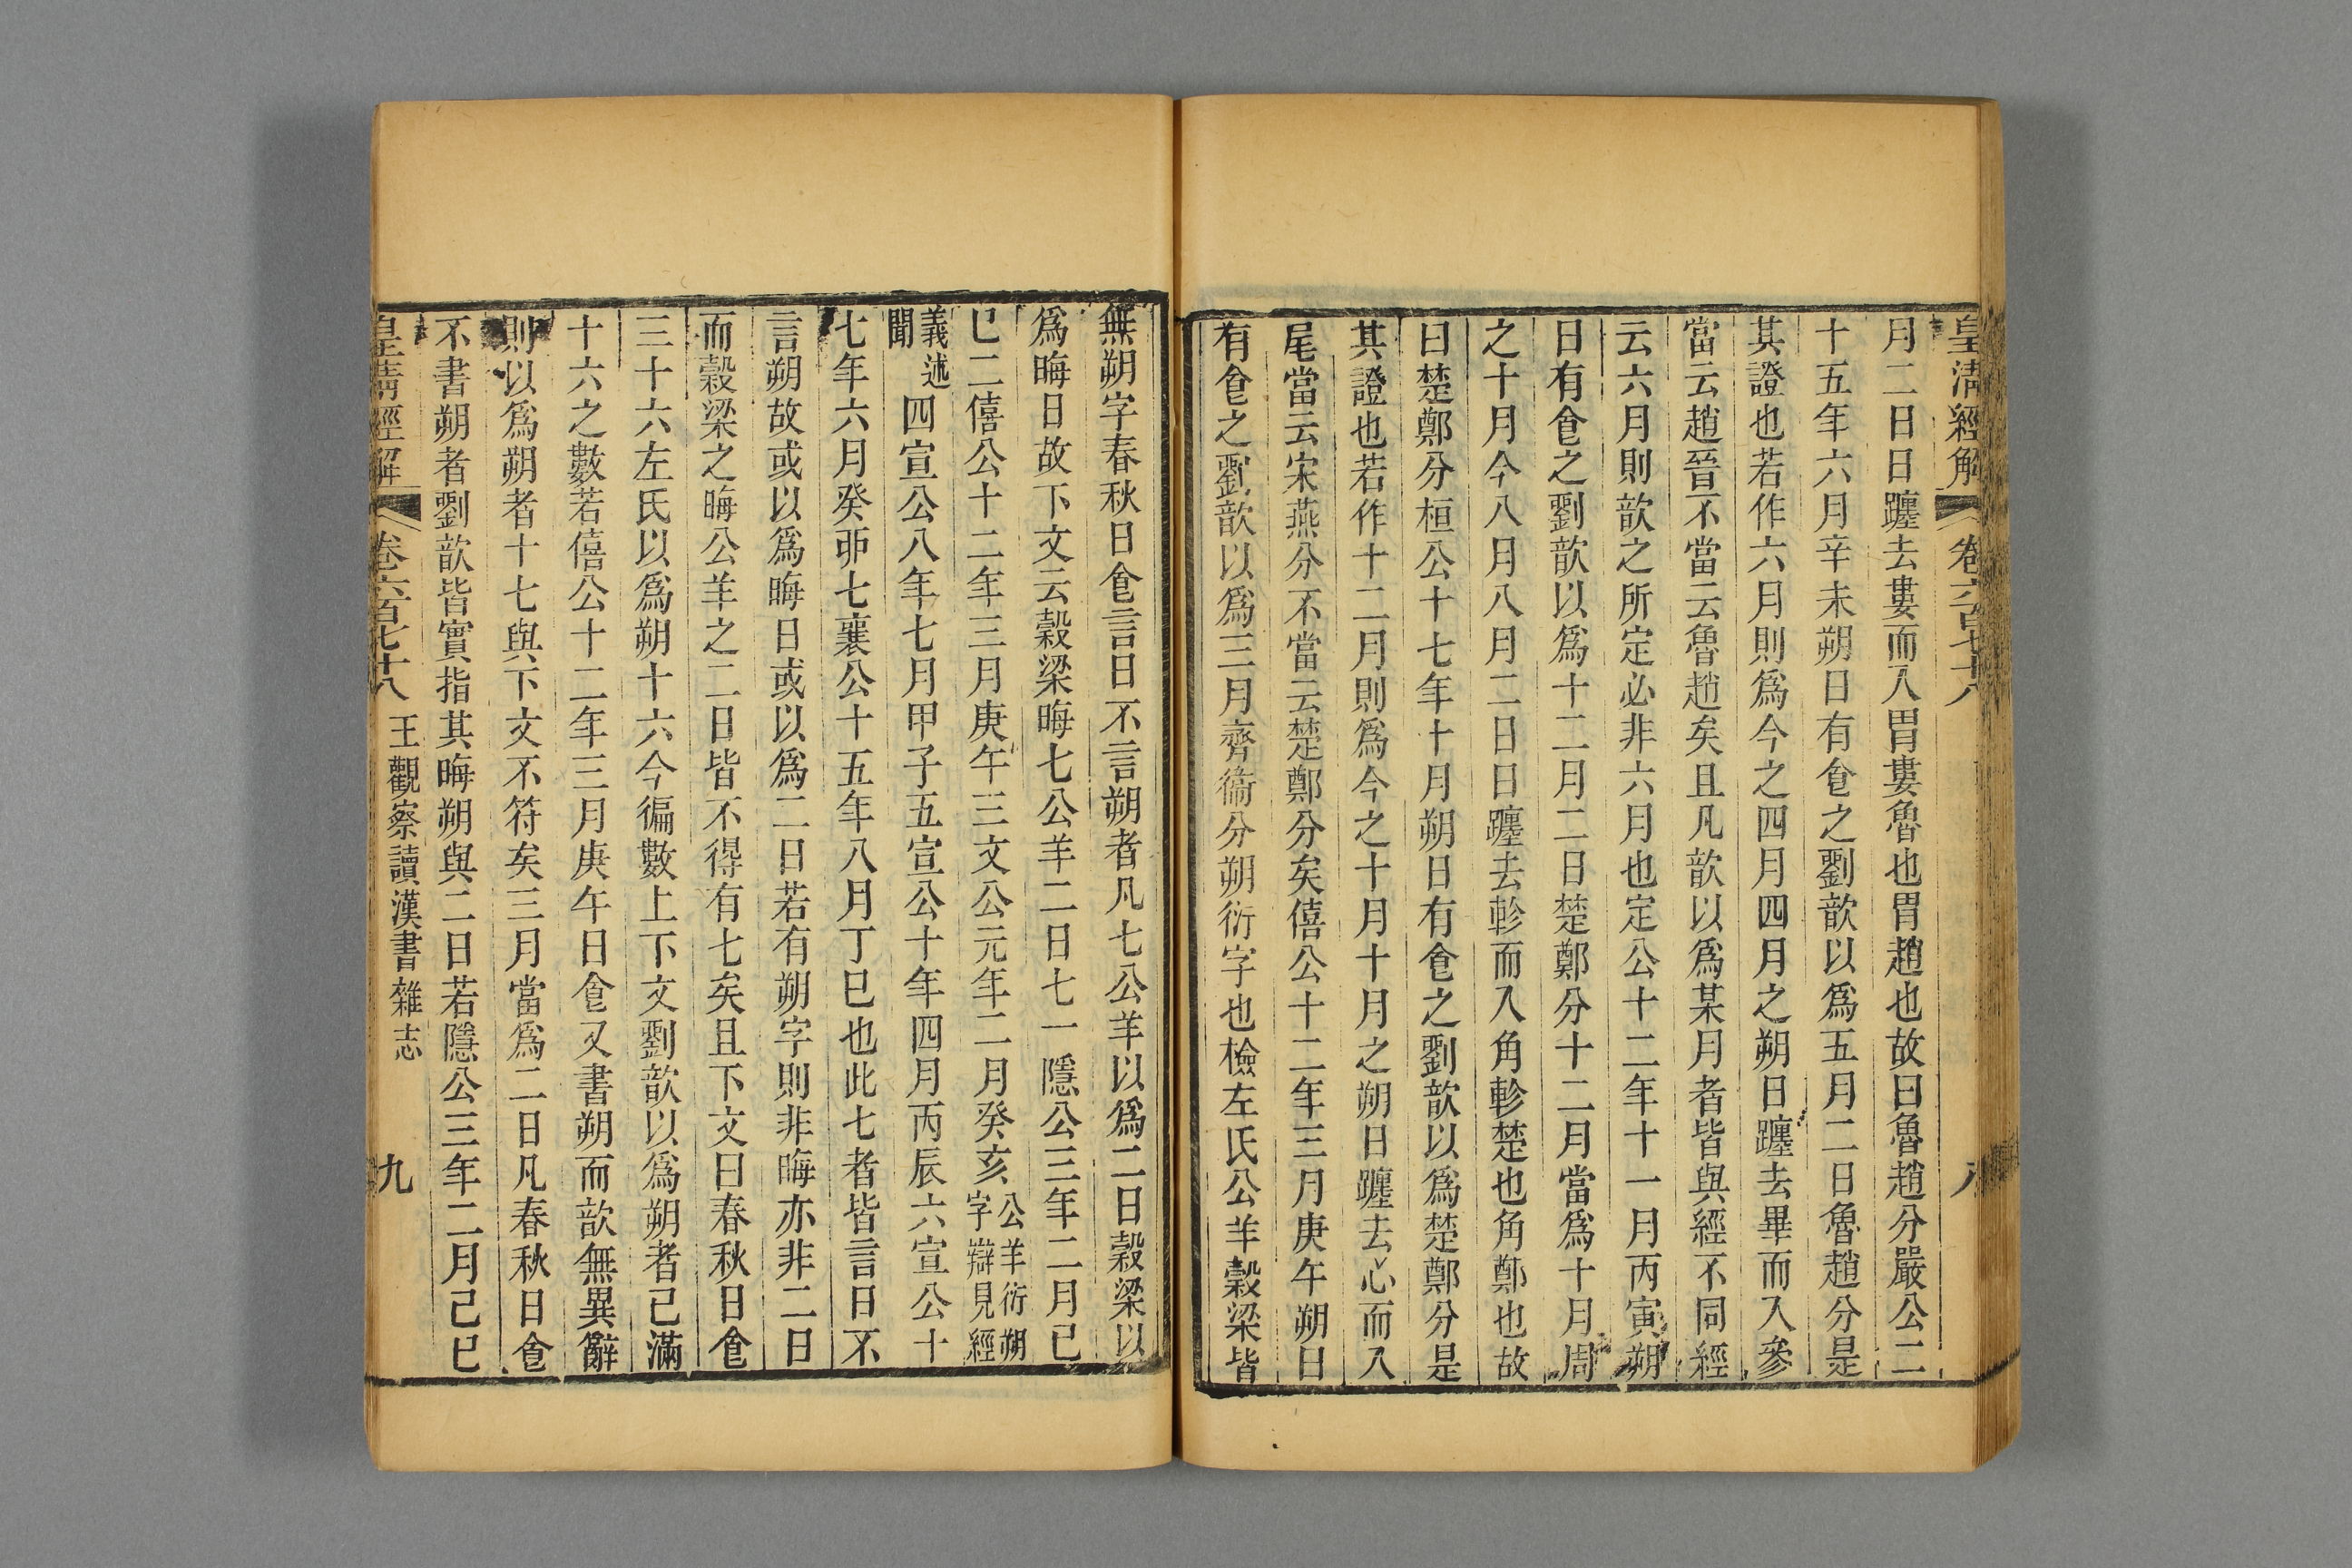 皇清經解 卷六百七十八 八
月二日日躔去婁而入胃婁魯也胃趙也故曰魯趙分嚴公二
十五年六月辛未朔日有食之劉歆以爲五月二日魯趙分是
其證也若作六月則爲今之四月四月之朔日躔去畢而入參
當云趙晉不當云魯趙矣且凡歆以爲某月者皆與經不同經
云六月則歆之所定必非六月也定公十二年十一月丙寅朔
日有食之劉歆以爲十二月二日楚鄭分十二月當爲十月周
之十月今八月八月二日日躔去軫而入角軫楚也角鄭也故
曰楚鄭分桓公十七年十月朔日有食之劉歆以爲楚鄭分是
其證也若作十二月則爲今之十月十月之朔日躔去心而入
尾當云宋燕分不當云楚鄭分矣僖公十二年三月庚午朔日
有食之劉歆以爲三月齊衞分朔衍字也檢左氏公羊穀梁皆
無朔字春秋日食言日不言朔者凡七公羊以爲二日穀梁以
爲晦日故下文云穀梁晦七公羊二日七一隱公三年二月己
巳二僖公十二年三月庚午三文公元年二月癸亥公羊衍朔字辯見經
義述聞四宣公八年七月甲子五宣公十年四月丙辰六宣公十
七年六月癸卯七襄公十五年八月丁巳也此七者皆言日不
言朔故或以爲晦日或以爲二日若有朔字則非晦亦非二日
而穀梁之晦公羊之二日皆不得有七矣且下文曰春秋日食
三十六左氏以爲朔十六今徧數上下文劉歆以爲朔者已滿
十六之數若僖公十二年三月庚午日食又書朔而歆無異辭
則以爲朔者十七與下文不符矣三月當爲二日凡春秋日食
不書朔者劉歆皆實指其晦朔與二日若隱公三年二月己巳
皇清經解 卷六百七十八 王觀察讀漢書雜志 九